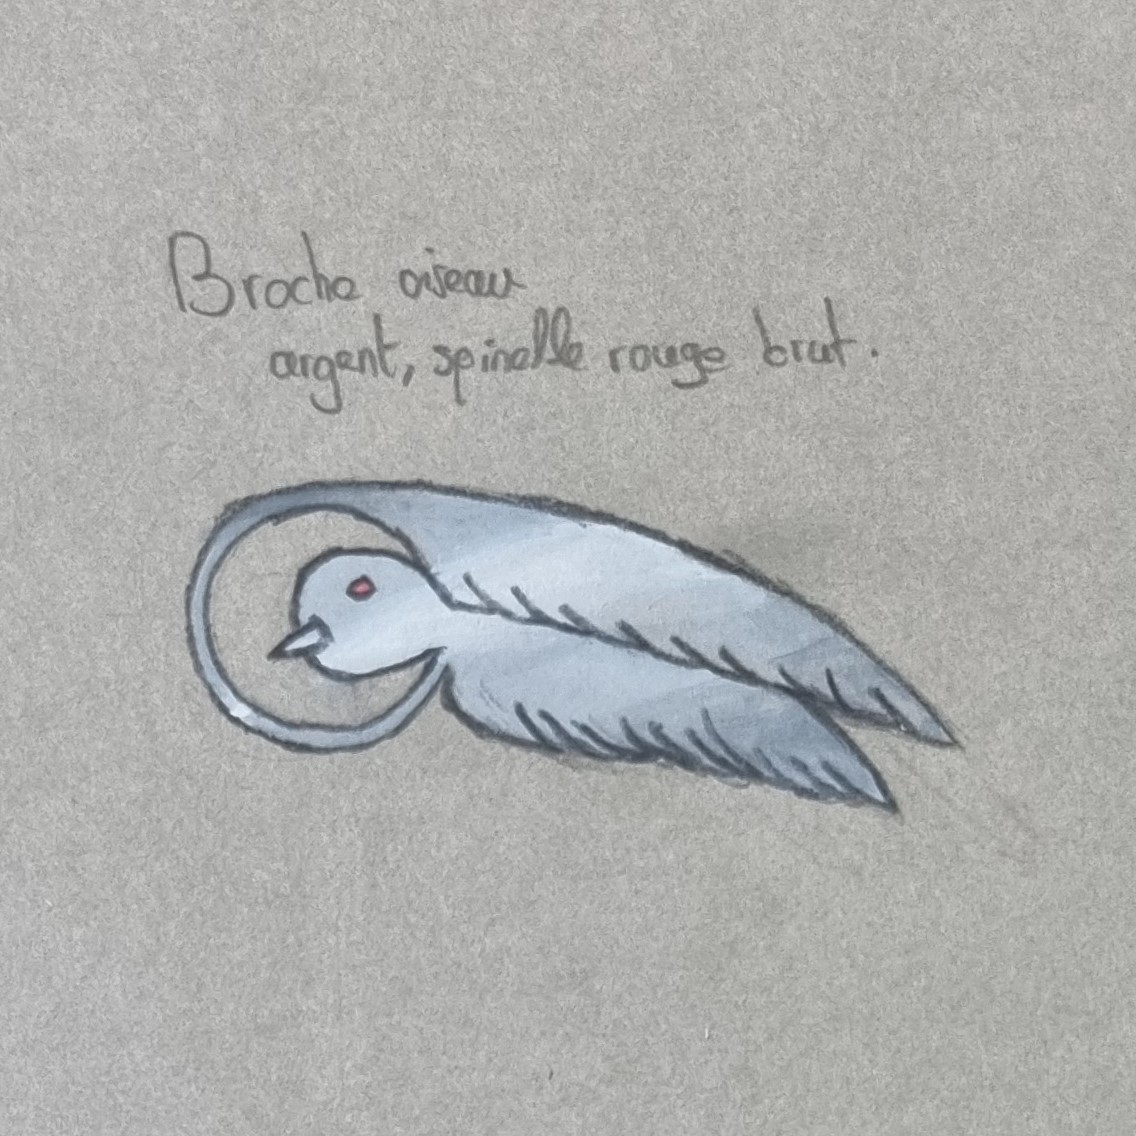 Broche oiseau
argent, spinelle rouge brut.